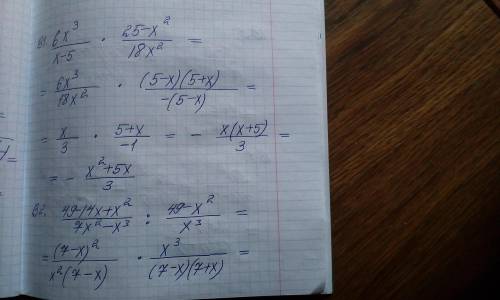 B1. 6x³/(x-5) · (25-x²)/(18x²) =
= 6x³/(18x²) · (5-x)(5+x)/(-(5-x)) =
= x/3 · (5+x)/(-1) = - x(x+5)/3 =
= - (x²+5x)/3
B2. (49-14x+x²)/(7x²-x³) : (49-x²)/x³ =
= (7-x)²/(x²(7-x)) · x³/((7-x)(7+x)) =